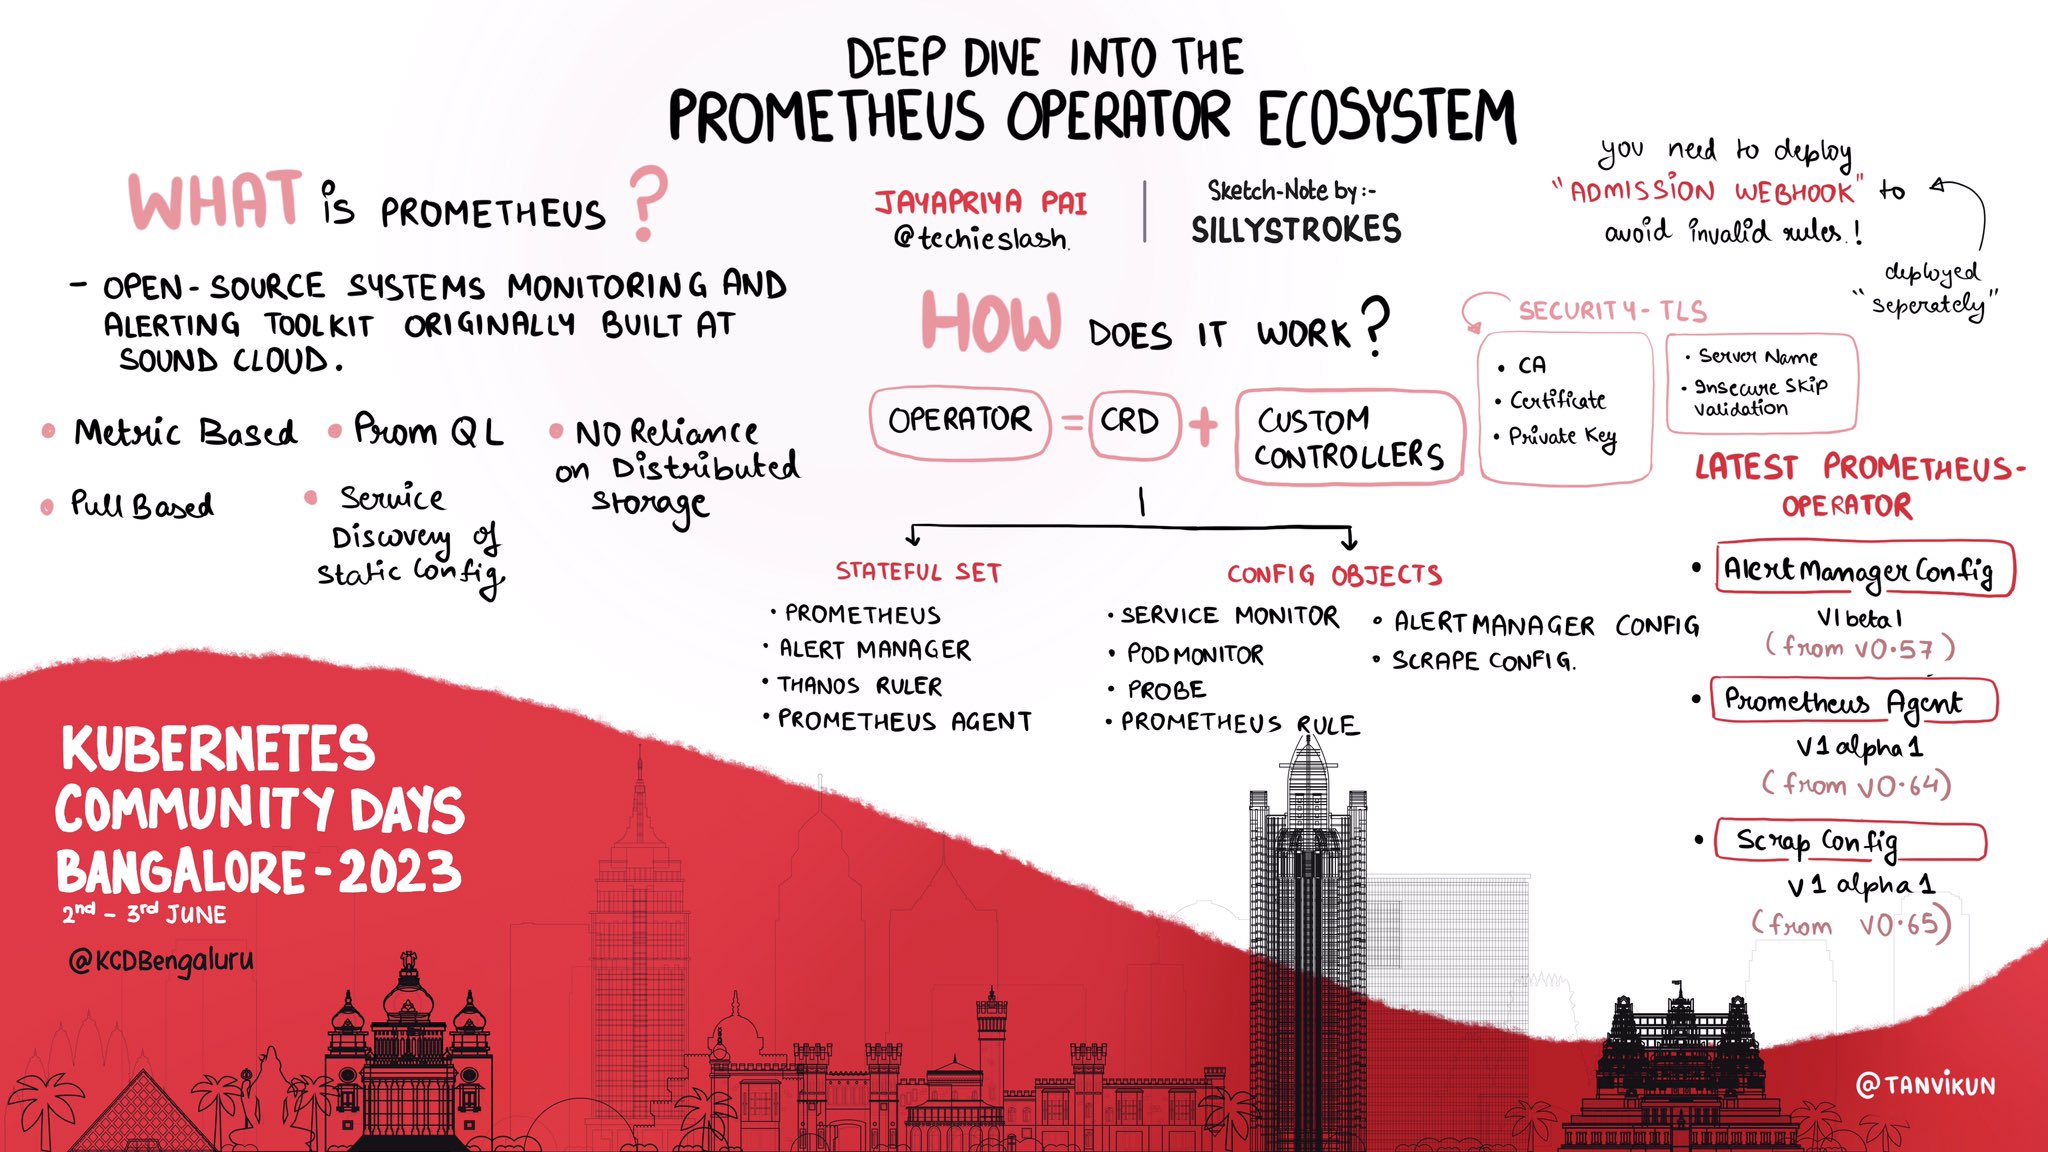 DEEP DIVE INTO THE
PROMETHEUS OPERATOR ECOSYSTEM
JAYAPRIYA PAI
@techieslash.
Sketch-Note by:-
SILLYSTROKES
WHAT iS PROMETHEUS ?
- OPEN-SOURCE SYSTEMS MONITORING AND
ALERTING TOOLKIT ORIGINALLY BUILT AT
SOUND CLOUD.
• Metric Based
• Prom QL
• NO Reliance
on Distributed
Storage
• Pull Based
• Service
Discovery of
Static Config,
HOW DOES IT WORK?
OPERATOR = CRD + CUSTOM
CONTROLLERS
STATEFUL SET
• PROMETHEUS
• ALERT MANAGER
• THANOS RULER
• PROMETHEUS AGENT
CONFIG OBJECTS
• SERVICE MONITOR
• PODMONITOR
• PROBE
• PROMETHEUS RULE
• ALERTMANAGER CONFIG
• SCRAPE CONFIG.
you need to deploy
"ADMISSION WEBHOOK" to
avoid invalid rules.!
deployed
"seperately"
SECURITY-TLS
• CA
• Certificate
• Private Key
• Server Name
• Insecure Skip
Validation
LATEST PROMETHEUS-
OPERATOR
• AlertManagerConfig
V1beta1
(from v0.57)
• Prometheus Agent
V1 alpha1
(from v0.64)
• Scrap Config
V1 alpha1
(from v0.65)
KUBERNETES
COMMUNITY DAYS
BANGALORE-2023
2nd - 3rd JUNE
@KCDBengaluru
@TANViKUN